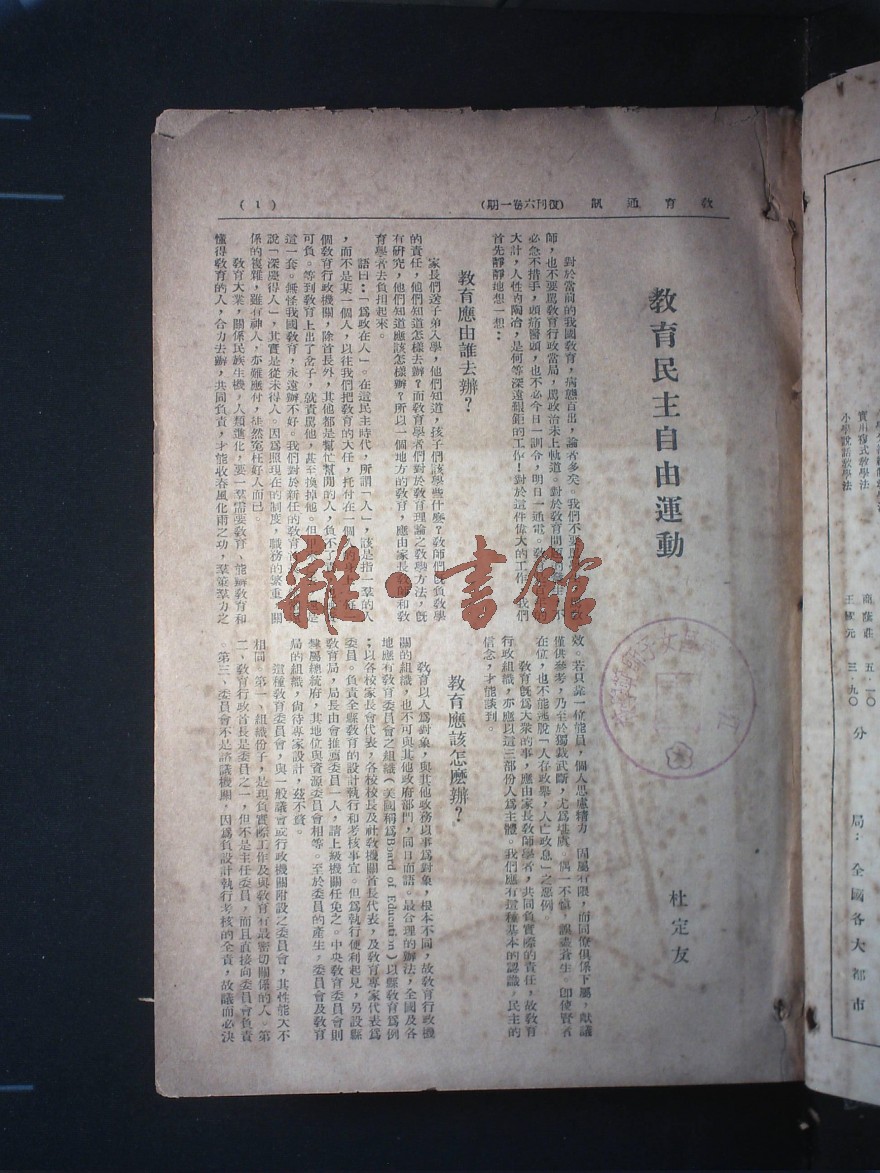 教育通訊 (復刊六卷一期) (1)
教育民主自由運動
杜定友
對於當前的我國教育，病態百出，論者多矣。我們不要
師，也不要罵教育行政當局，罵政治未上軌道。對於教育問題
必急不措手，頭痛醫頭，也不必今日一訓令，明日一通電。
大計，人性的陶冶，是何等深遠艱鉅的工作！對於這件偉大的工作，我們
首先靜靜地想一想：
教育應由誰去辦？
家長們送子弟入學，他們知道，孩子們該學些什麼？教師們旣負教學
的責任，他們知道怎樣去辦？而教育學者們對於教育理論之教學方法，旣
有研究，他們知道應該怎樣辦？所以一個地方的教育，應由家長教師和教
育學者去負担起來。
語曰：「爲政在人」。在這民主時代，所謂「人」，該是指一羣的人
，而不是某一個人，以往我們把教育的大任，托付在一個
個教育行政機關，除首長外，其他都是幫忙幫閒的人，負不了
可負。等到教育上出了岔子，就責罵他，甚至換掉他。但
這一套。無怪我國教育，永遠辦不好。我們對於新任的教育
說「深慶得人」，其實是從未得人。因爲照現在的制度，職務的繁重，關
係的複雜，雖有神人，亦難應付，徒然寃枉好人而已。
教育大業，關係民族生機，人類進化，要一羣需要教育、能辦教育和
懂得教育的人，合力去辦，共同負責，才能收春風化雨之功，羣策羣力之
效。若只靠一位能員，個人思慮精力，固屬有限，而同僚俱係下屬，獻議
僅供參考，乃至於獨裁武斷，尤爲堪虞。偶一不愼，誤盡蒼生。卽使賢者
在位，也不能逃脫「人存政舉，人亡政息」之惡例。
教育旣爲大衆的事，應由家長教師學者，共同負實際的責任，故教育
行政組織，亦應以這三部份人爲主體。我們應有這種基本的認識，民主的
信念，才能談到。
教育應該怎麼辦？
教育以人爲對象，與其他政務以事爲對象，根本不同，故教育行政機
關的組織，也不可與其他政府部門，同日而語。最合理的辦法，全國及各
地應有教育委員會之組織（美國稱爲Board of Education）以縣教育爲例
：以各校家長會代表，各校校長及社教機關首長代表，及教育專家代表爲
委員。負責全縣教育的設計執行和考核事宜。但爲執行便利起見，另設縣
教育局，局長由會推薦委員一人，請上級機關任免之。中央教育委員會則
隸屬總統府，其地位與資源委員會相等。至於委員的產生，委員會及教育
局的組織，尙待專家設計，茲不贅。
這種教育委員會，與一般議會或行政機關附設之委員會，其性能大不
相同。第一、組織份子，是現負實際工作及與教育有最密切關係的人。第
二、教育行政首長是委員之一，但不是主任委員，而且直接向委員會負責
。第三、委員會不是諮議機關，因爲負設計執行考核的全責，故議而必決
雜·書館
實用複式教學法
小學說話教學法
商蔭莊 五·一〇
王國元 三·九〇
分局：全國各大都市